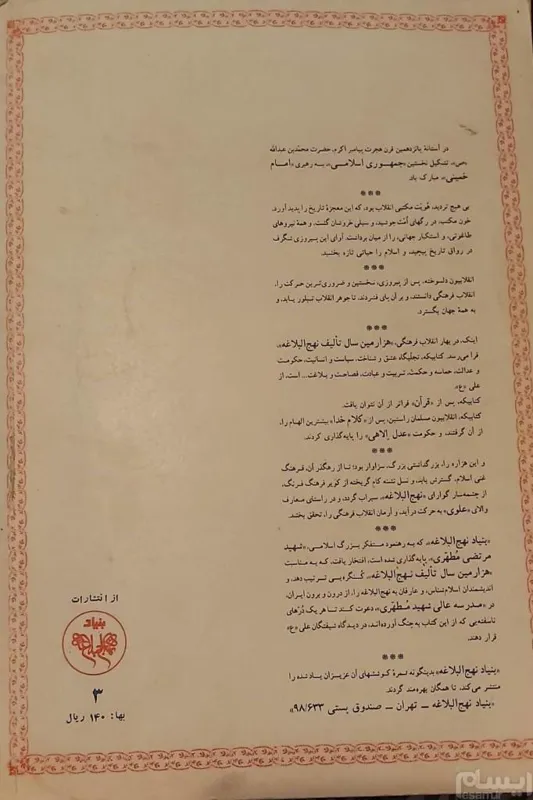 در آستانهٔ پانزدهمین قرن هجرت پیامبر اکرم، حضرت محمدبن عبدالله
«ص»، تشکیل نخستین «جمهوری اسلامی»، به رهبری «امام
خمینی»، مبارک باد.
***
بی هیچ تردید، هویت مکتبی انقلاب بود، که این معجزهٔ تاریخ را پدید آورد.
خون مکتب، در رگهای امّت جوشید، و سیلی خروشان گشت، و همهٔ نیروهای
طاغوتی، و استکبار جهانی، را از میان برداشت. آوای این پیروزی شگرف
در رواق تاریخ پیچید، و اسلام را حیاتی تازه بخشید.
***
انقلابیون دلسوخته، پس از پیروزی، نخستین و ضروری‌ترین حرکت را،
انقلاب فرهنگی دانستند، و بر آن پای فشردند. تا جوهر انقلاب تبلور یابد، و
به همهٔ جهان بگسترد.
***
اینک، در بهار انقلاب فرهنگی، «هزارمین سال تألیف نهج‌البلاغه»،
فرا می‌رسد. کتابیکه، تجلیگاه عشق و شناخت، سیاست و انسانیت، حکومت
و عدالت، حماسه و حکمت، تربیت و عبادت، فصاحت و بلاغت... است، از
علی «ع».
کتابیکه، پس از «قرآن» فراتر از آن نتوان یافت.
کتابیکه، انقلابیون مسلمان راستین، پس از «کلام خدا» بیشترین الهام را،
از آن گرفتند، و حکومت «عدل الاهی» را پایه‌گذاری کردند.
***
و این هزاره را، بزرگداشتی بزرگ، سزاوار بود؛ تا از رهگذر آن، فرهنگ
غنی اسلام، گسترش یابد، و نسل تشنه کام گریخته از کویر فرهنگ فرنگ،
از چشمه‌سار گوارای «نهج‌البلاغه»، سیراب گردد، و در راستای معارف
والای «علوی» به حرکت درآید، و آرمان انقلاب فرهنگی را، تحقق بخشد.
***
«بنیاد نهج‌البلاغه»، که به رهنمود متفکر بزرگ اسلامی، «شهید
مرتضی مطهّری»، پایه‌گذاری شده است، افتخار یافت، که به مناسبت
«هزارمین سال تألیف نهج‌البلاغه»، کنگره‌یی ترتیب دهد، و
اندیشمندان اسلام‌شناس، و عارفان به نهج‌البلاغه را، از درون و برون ایران،
در «مدرسه عالی شهید مطهّری»، دعوت کند تا هر یک دُرّهای
ناسفته‌یی که از این کتاب به چنگ آورده‌اند، در دیدگاه شیفتگان علی «ع»
قرار دهند.
***
«بنیاد نهج‌البلاغه» بدینگونه ثمرهٔ کوششهای آن عزیزان یادشده را
منتشر می‌کند، تا همگان بهره‌مند گردند.
«بنیاد نهج‌البلاغه ــ تهران ــ صندوق پستی ۹۸/۶۳۳»
از انتشارات
بنیاد
۳
بها: ۱۴۰ ریال
ایسام
esam.ir